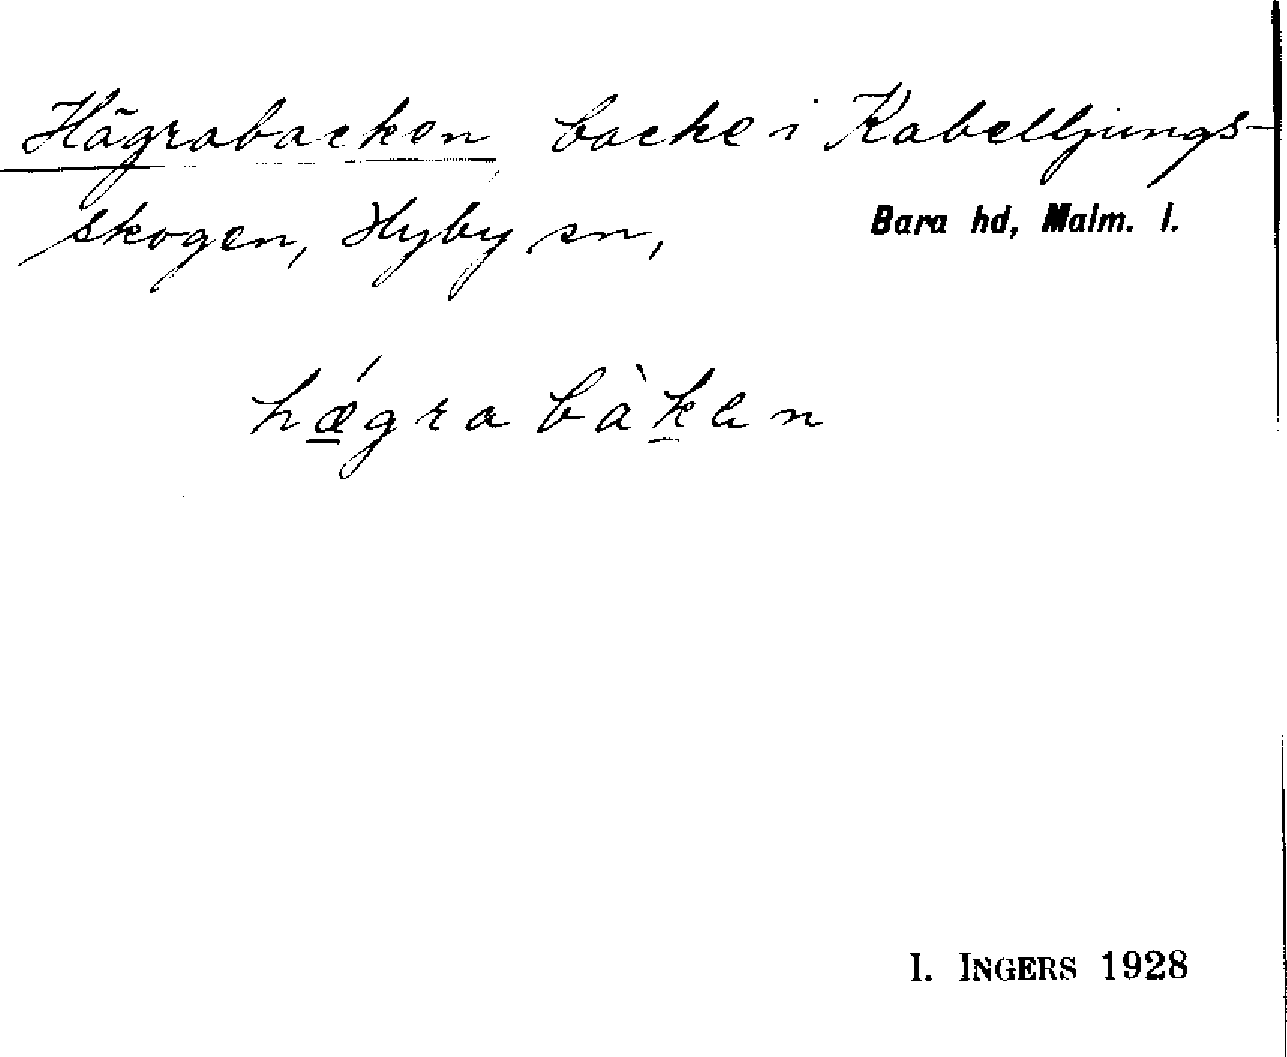 Hägrabacken backe i Kabelljungs-
skogen, Hyby sn, Bara hd, Malm. l.
hǽgra bàkan
I. INGERS 1928